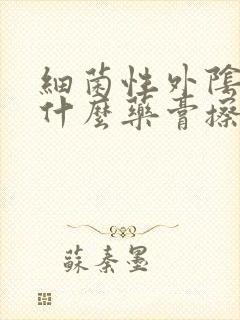 細菌性外陰
什麼藥膏擦
蘇秦墨